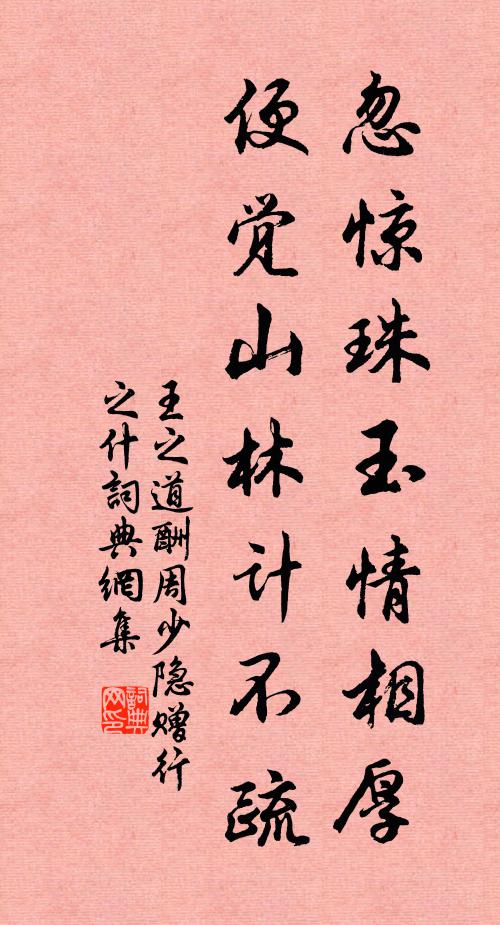 忽惊珠玉情相厚
便觉山林计不疏
王之道酬周少隐赠行
之什詞典網集
詞典
网印